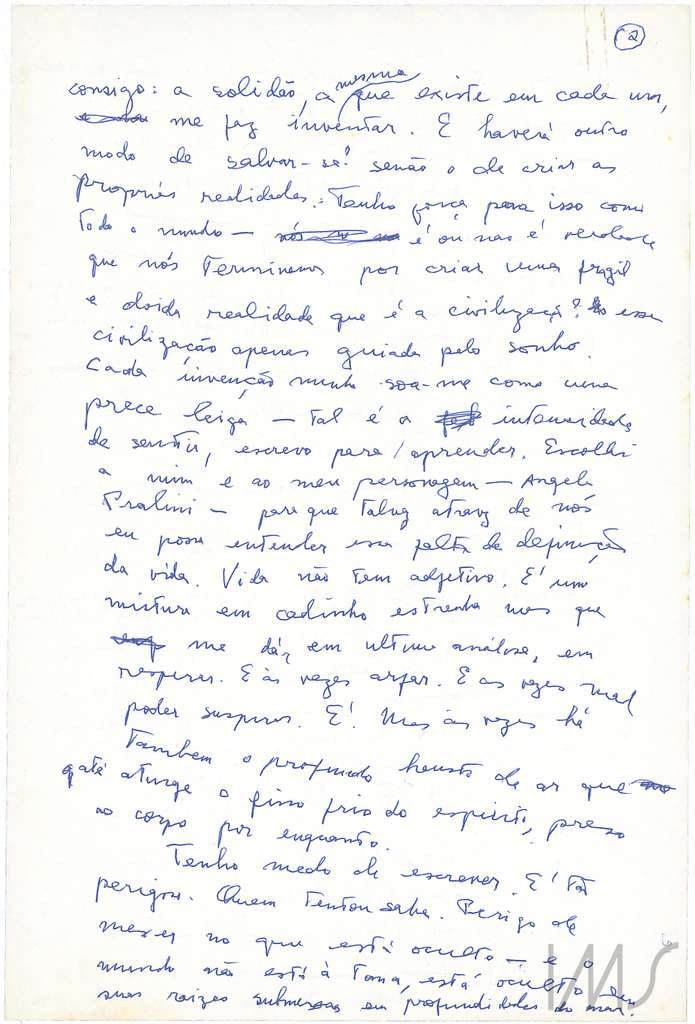 2
consigo: a solidão, a mesma que existe em cada um,
me faz inventar. E haverá outro
modo de salvar-se? senão o de criar as
próprias realidades. Tenho força para isso como
todo o mundo — é ou não é verdade
que nós terminamos por criar uma frágil
e doida realidade que é a civilização? essa
civilização apenas guiada pelo sonho.
Cada invenção minha soa-me como uma
prece leiga — tal é a intensidade
de sentir, escrevo para aprender. Escolhi
a mim e ao meu personagem — Angela
Pralini — para que talvez através de nós
eu possa entender essa falta de definição
da vida. Vida não tem adjetivo. É uma
mistura em cadinho estranho mas que
me dá, em última análise, em
respirar. E às vezes arfar. E as vezes mal
poder suspirar. É. Mas às vezes há
também o profundo hausto de ar que
até atinge o fino frio do espírito, preso
ao corpo por enquanto.
Tenho medo de escrever. É tão
perigoso. Quem tentou sabe. Perigo de
mexer no que está oculto — e o
mundo não está à tona, está oculto em
suas raízes submersas em profundidades do mar.
IMS